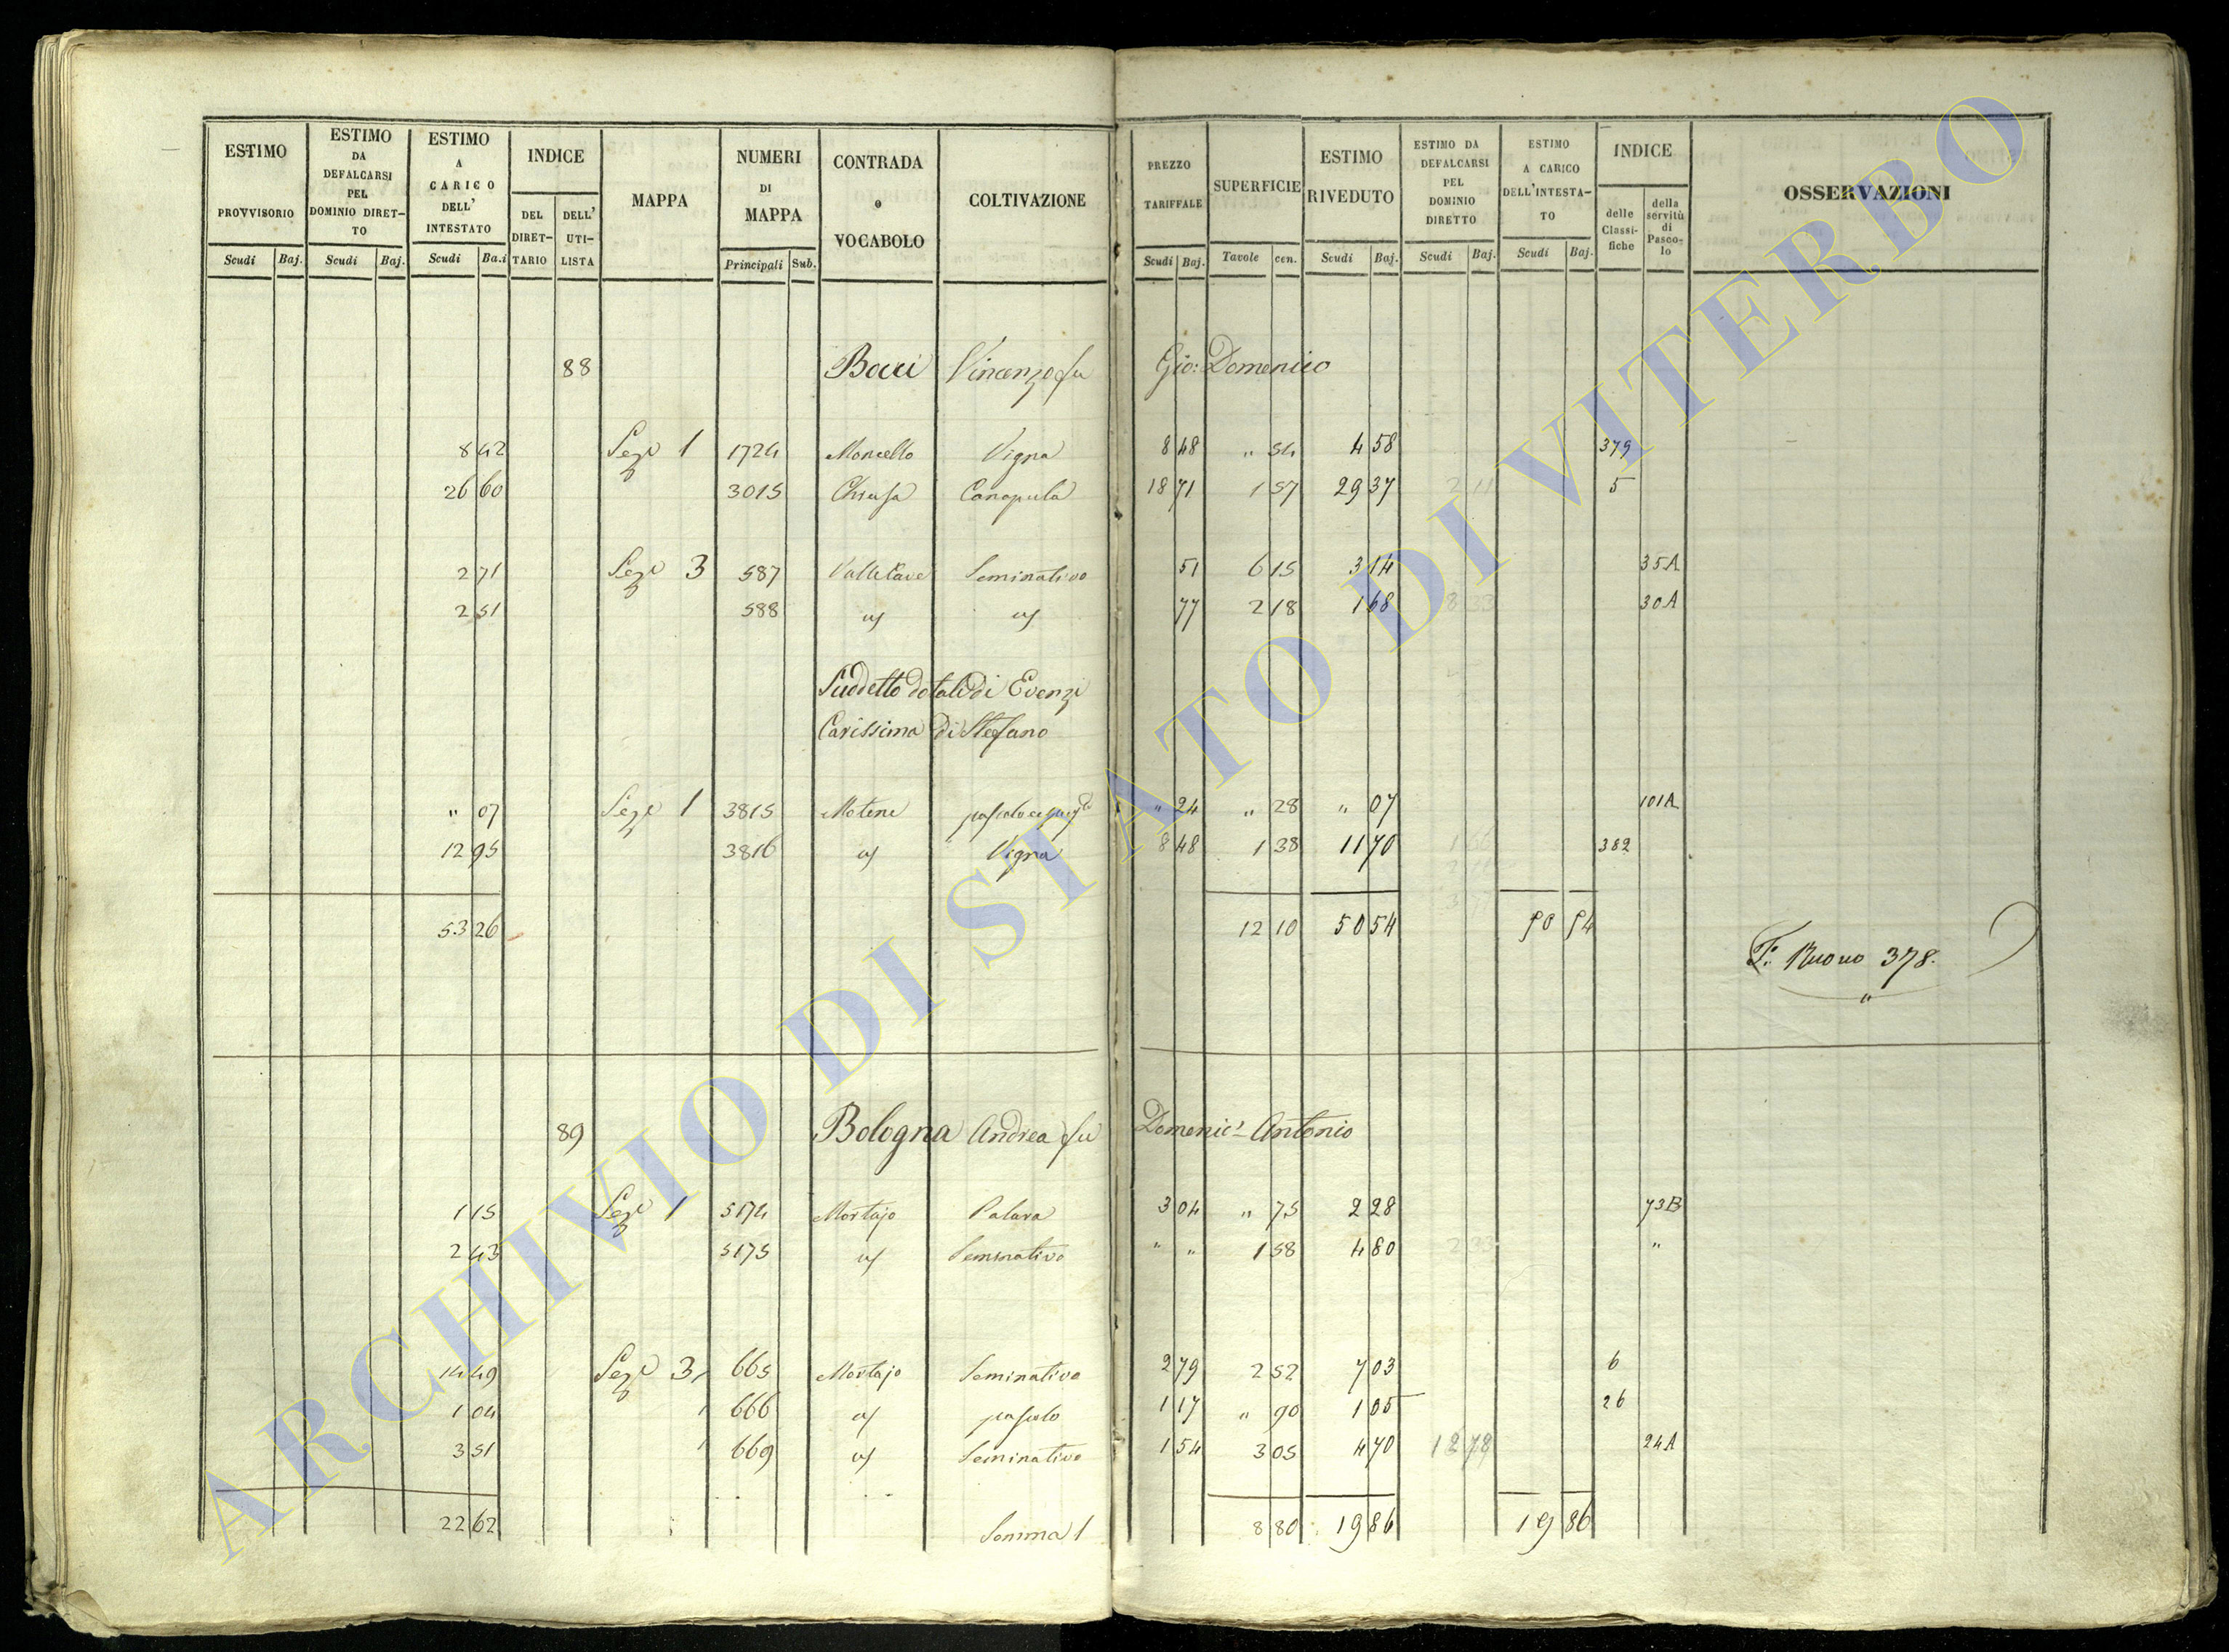 ESTIMO PROVVISORIO | ESTIMO DA DEFALCARSI PEL DOMINIO DIRETTO | ESTIMO A CARICO DELL' INTESTATO | INDICE | MAPPA | NUMERI DI MAPPA | CONTRADA o VOCABOLO | COLTIVAZIONE | PREZZO TARIFFALE | SUPERFICIE | ESTIMO RIVEDUTO | ESTIMO DA DEFALCARSI PEL DOMINIO DIRETTO | ESTIMO A CARICO DELL'INTESTATO | INDICE | OSSERVAZIONI
DEL DIRETTARIO | DELL' UTILISTA | delle Classifiche | della servitù di Pascolo
Scudi | Baj. | Scudi | Baj. | Scudi | Ba.i | Principali | Sub. | Scudi | Baj. | Tavole | cen. | Scudi | Baj. | Scudi | Baj. | Scudi | Baj.
88 Bocci Vincenzo fu Gio: Domenico
8 42 Seze 1 1724 Moncello Vigna 8 48 " 54 4 58 379
26 60 3015 Chiusa Canapula 18 71 1 57 29 37 2 11 5
2 71 Seze 3 587 Seminativo 51 6 15 3 14 35A
2 51 588 us us 77 2 18 1 68 8 33 30A
Suddetto dotali di Evenzi
Carissima di Stefano
" 07 Seze 1 3815 Motene " 24 " 28 " 07 101A
12 95 3816 us Vigna 8 48 1 38 11 70 382
53 26 12 10 50 54 50 54
F: Nuovo 378.
89 Bologna Andrea fu Domenic' Antonio
1 15 Seze 1 5174 Mortajo Palara 3 04 " 75 2 28 73B
2 43 5175 us Seminativo " " 1 58 4 80 "
14 49 Seze 3 665 Mortajo Seminativo 2 79 2 52 7 03 6
1 04 666 us pascolo 1 17 " 90 1 05 26
3 51 669 us Seminativo 1 54 3 05 4 70 12 78 24A
22 62 8 80 19 86 19 86
ARCHIVIO DI STATO DI VITERBO